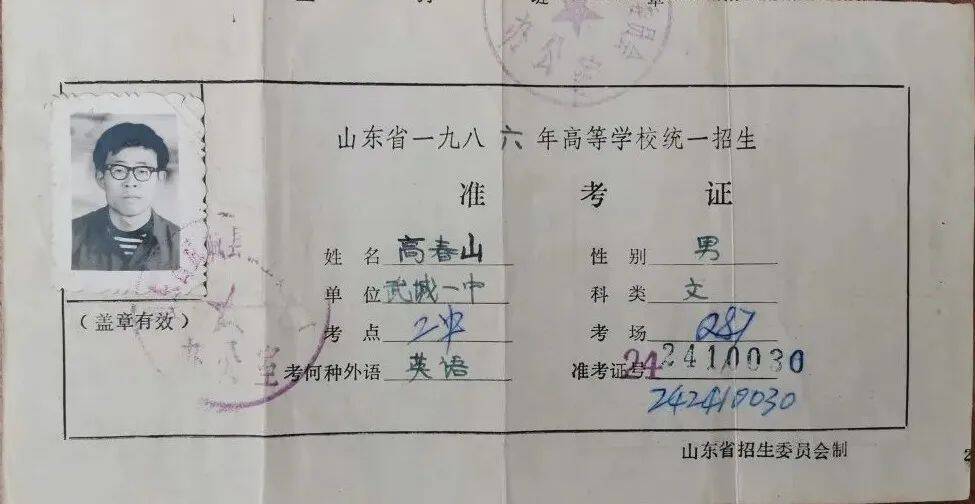 山东省一九八六年高等学校统一招生
准考证
姓名 高春山 性别 男
单位 武城一中 科类 文
考点 二中 考场 287
考何种外语 英语 准考证号 242410030
242410030
(盖章有效)
山东省招生委员会制